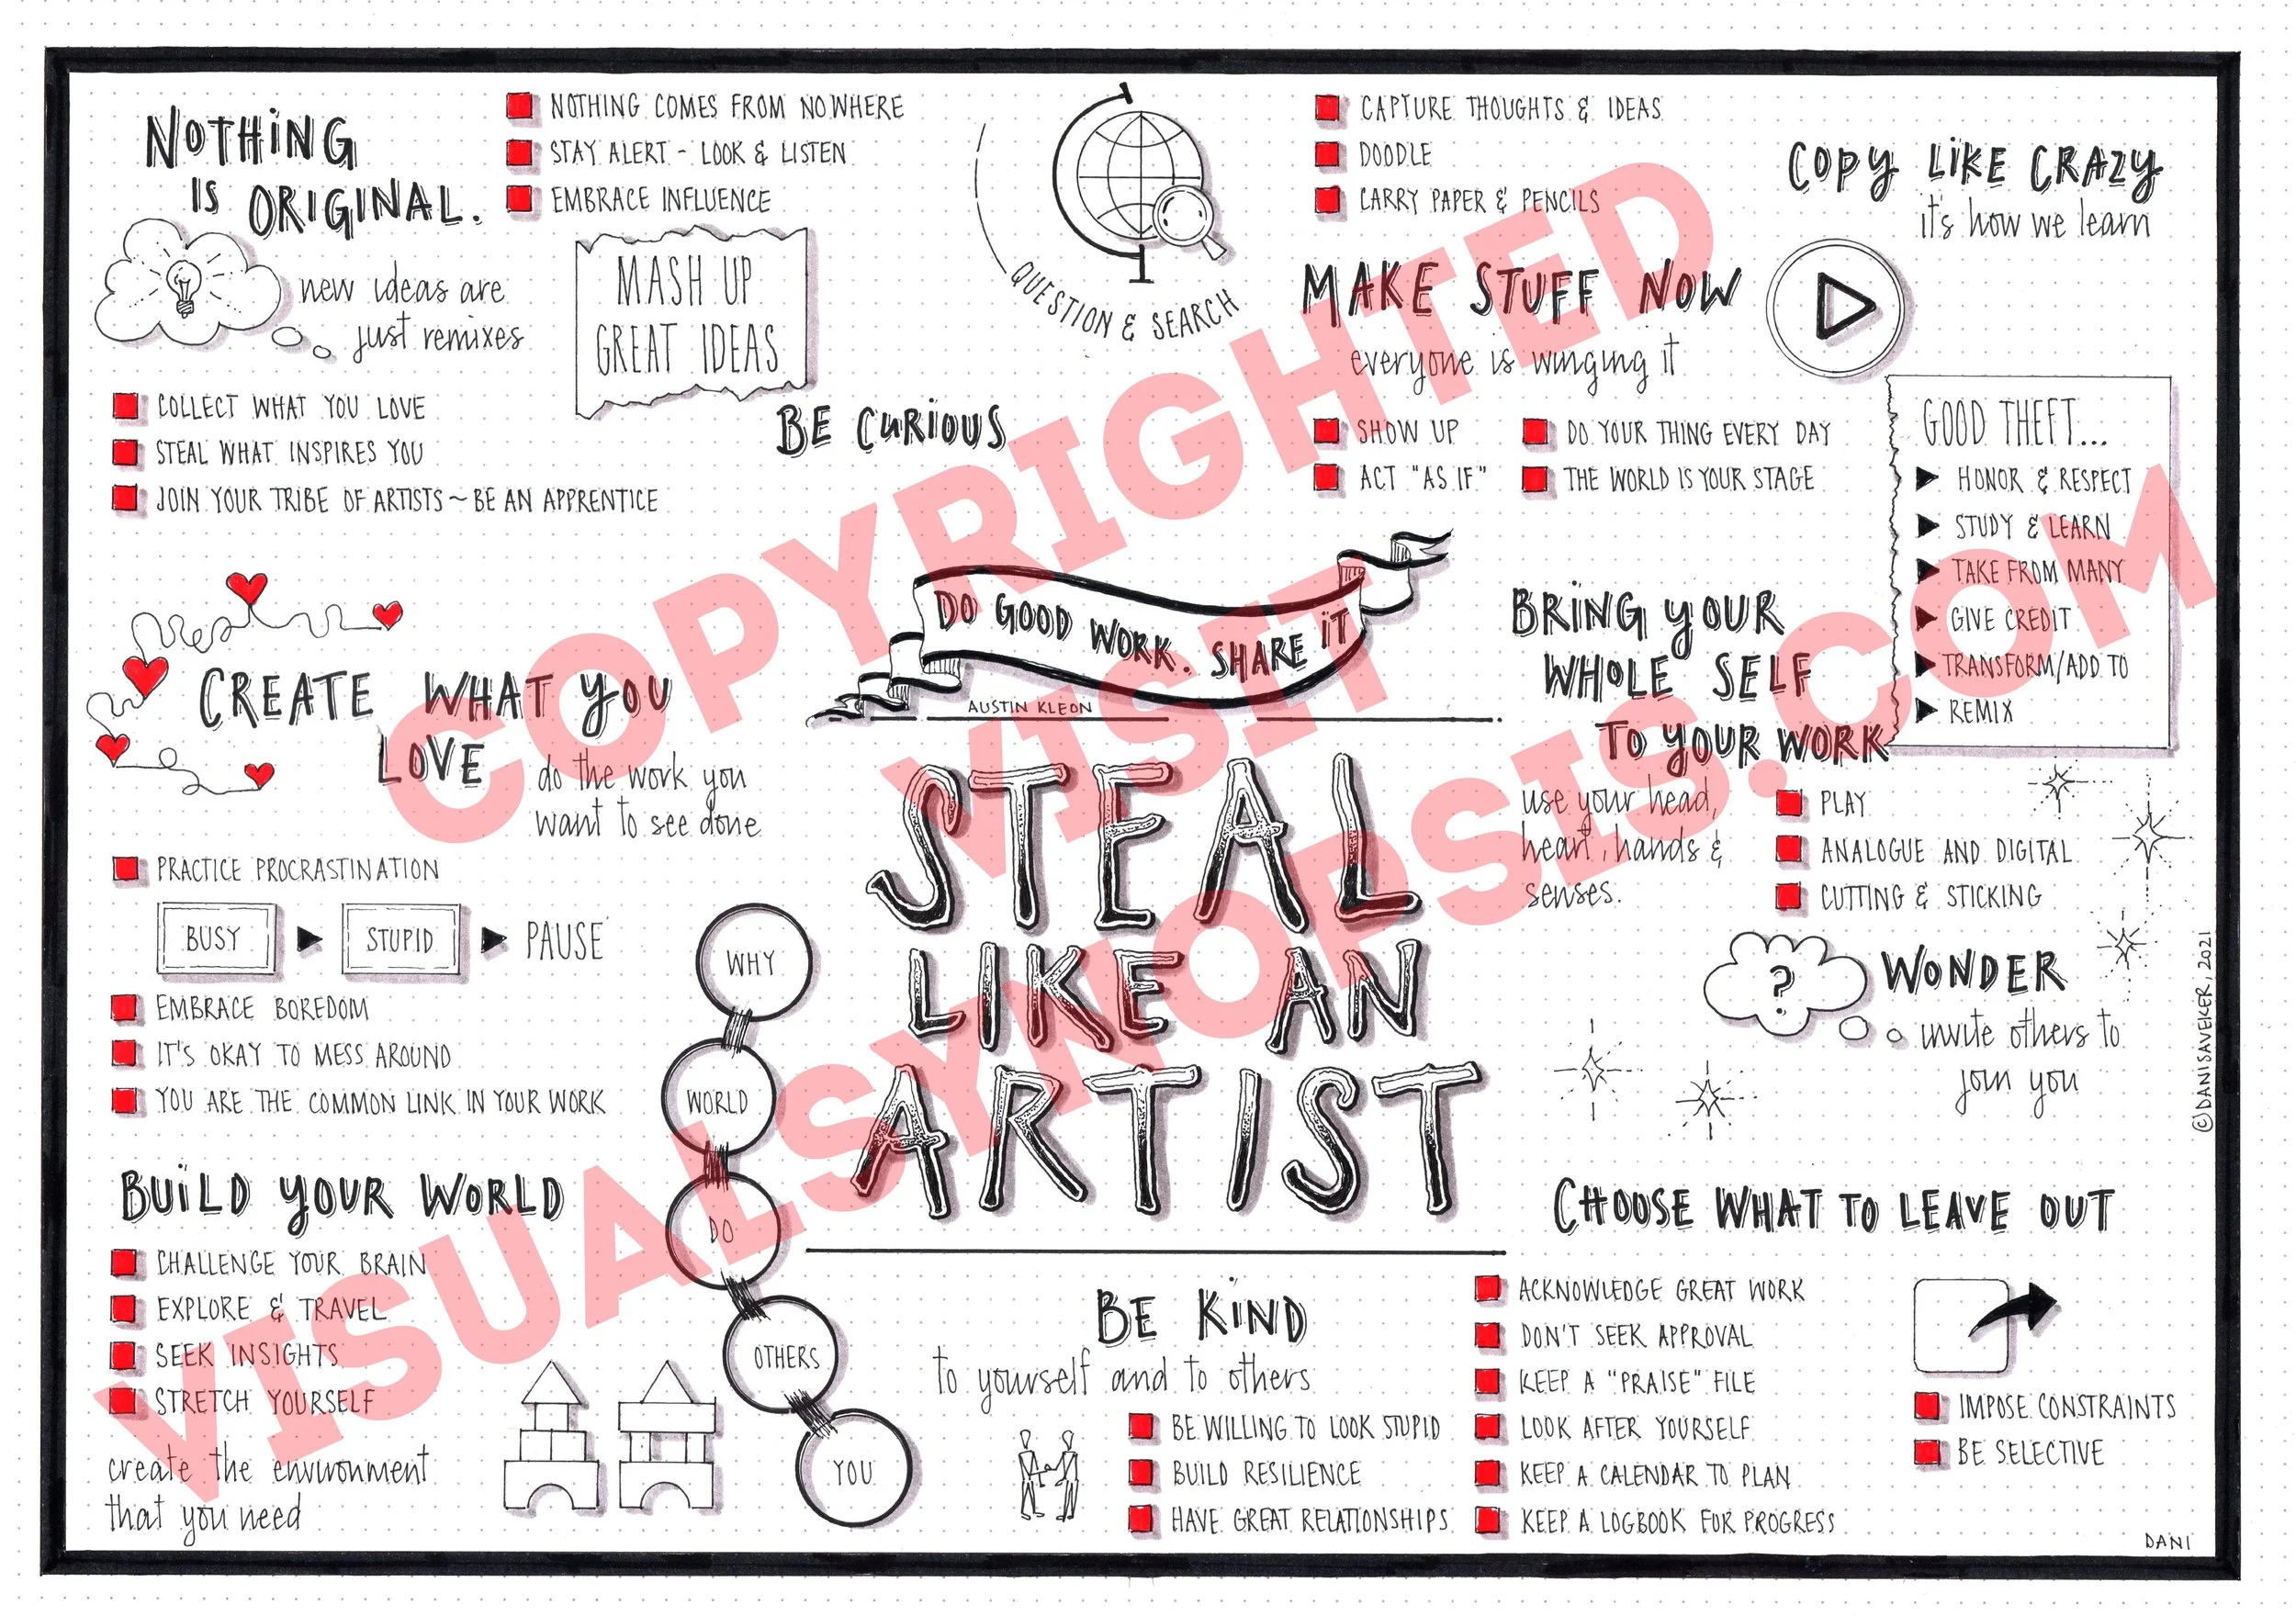 NOTHING
IS ORIGINAL.
new ideas are
just remixes
NOTHING COMES FROM NOWHERE
STAY ALERT - LOOK & LISTEN
EMBRACE INFLUENCE
MASH UP
GREAT IDEAS
COLLECT WHAT YOU LOVE
STEAL WHAT INSPIRES YOU
JOIN YOUR TRIBE OF ARTISTS ~ BE AN APPRENTICE
BE CURIOUS
QUESTION & SEARCH
CAPTURE THOUGHTS & IDEAS
DOODLE
CARRY PAPER & PENCILS
MAKE STUFF NOW
everyone is winging it
SHOW UP
ACT "AS IF"
DO YOUR THING EVERY DAY
THE WORLD IS YOUR STAGE
COPY LIKE CRAZY
it's how we learn
GOOD THEFT...
HONOR & RESPECT
STUDY & LEARN
TAKE FROM MANY
GIVE CREDIT
TRANSFORM/ADD TO
REMIX
CREATE WHAT YOU
LOVE
do the work you
want to see done
PRACTICE PROCRASTINATION
BUSY
STUPID
PAUSE
EMBRACE BOREDOM
IT'S OKAY TO MESS AROUND
YOU ARE THE COMMON LINK IN YOUR WORK
DO GOOD WORK. SHARE IT
AUSTIN KLEON
STEAL
LIKE AN
ARTIST
BRING YOUR
WHOLE SELF
TO YOUR WORK
use your head,
heart, hands &
senses.
PLAY
ANALOGUE AND DIGITAL
CUTTING & STICKING
?
WONDER
invite others to
join you
WHY
WORLD
DO
OTHERS
YOU
BUILD YOUR WORLD
CHALLENGE YOUR BRAIN
EXPLORE & TRAVEL
SEEK INSIGHTS
STRETCH YOURSELF
create the environment
that you need
BE KIND
to yourself and to others
BE WILLING TO LOOK STUPID
BUILD RESILIENCE
HAVE GREAT RELATIONSHIPS
ACKNOWLEDGE GREAT WORK
DON'T SEEK APPROVAL
KEEP A "PRAISE" FILE
LOOK AFTER YOURSELF
KEEP A CALENDAR TO PLAN
KEEP A LOGBOOK FOR PROGRESS
CHOOSE WHAT TO LEAVE OUT
IMPOSE CONSTRAINTS
BE SELECTIVE
DANI
©DANISAVEKER, 2021
COPYRIGHTED
VISIT
VISUALSYNOPSIS.COM